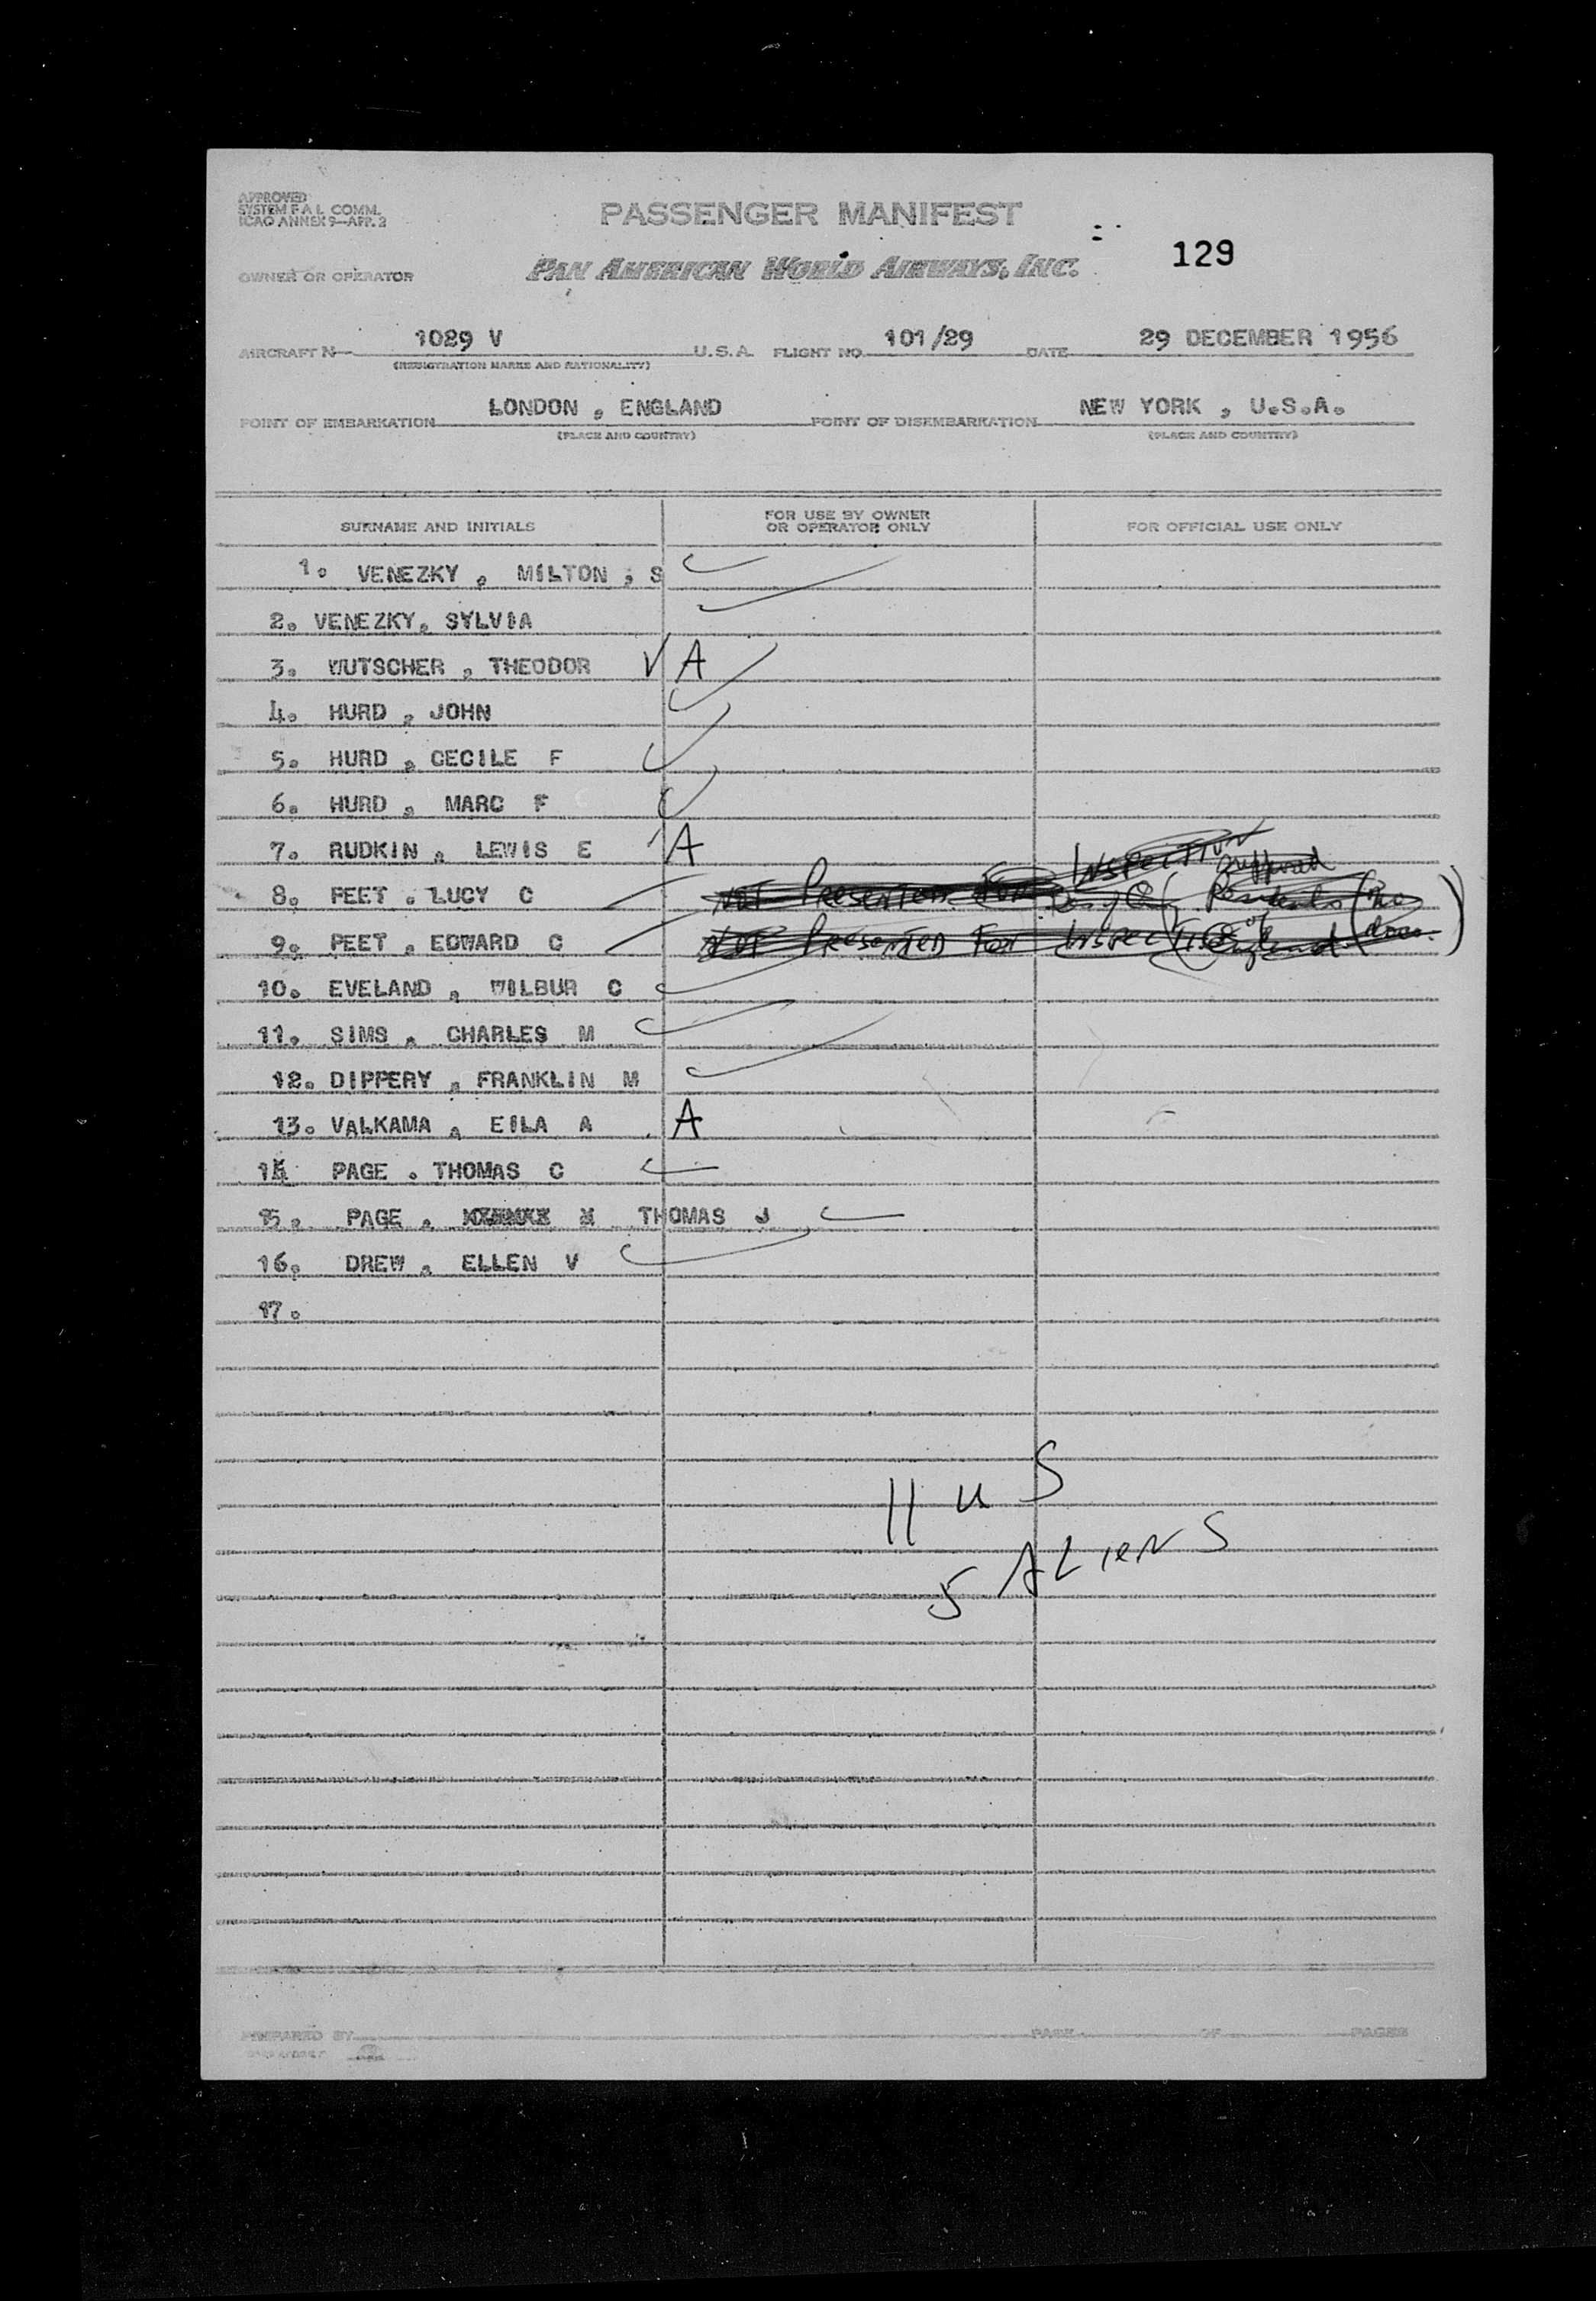 APPROVED
SYSTEM F A L COMM.
ICAO ANNEX 9—APP. 2
PASSENGER MANIFEST
129
OWNER OR OPERATOR PAN AMERICAN WORLD AIRWAYS, INC.
AIRCRAFT N 1029 V U.S.A. FLIGHT NO. 101/29 DATE 29 DECEMBER 1956
(REGISTRATION MARKS AND NATIONALITY)
POINT OF EMBARKATION LONDON , ENGLAND POINT OF DISEMBARKATION NEW YORK , U.S.A.
(PLACE AND COUNTRY) (PLACE AND COUNTRY)
SURNAME AND INITIALS
FOR USE BY OWNER
OR OPERATOR ONLY
FOR OFFICIAL USE ONLY
1. VENEZKY , MILTON , S
2. VENEZKY, SYLVIA
3. WUTSCHER , THEODOR A
4. HURD , JOHN
5. HURD , CECILE F
6. HURD , MARC F
7. RUDKIN , LEWIS E A
INSPECTION
8. PEET . LUCY C NOT PRESENTED FOR Residents (no
9. PEET , EDWARD C NOT PRESENTED FOR INSPECTION England (docs.)
10. EVELAND , WILBUR C
11. SIMS , CHARLES M
12. DIPPERY , FRANKLIN M
13. VALKAMA , EILA A A
14 PAGE . THOMAS C
15. PAGE , THOMAS J
16. DREW , ELLEN V
17.
11 U S
5 ALIENS
PREPARED BY PAGE OF PAGES